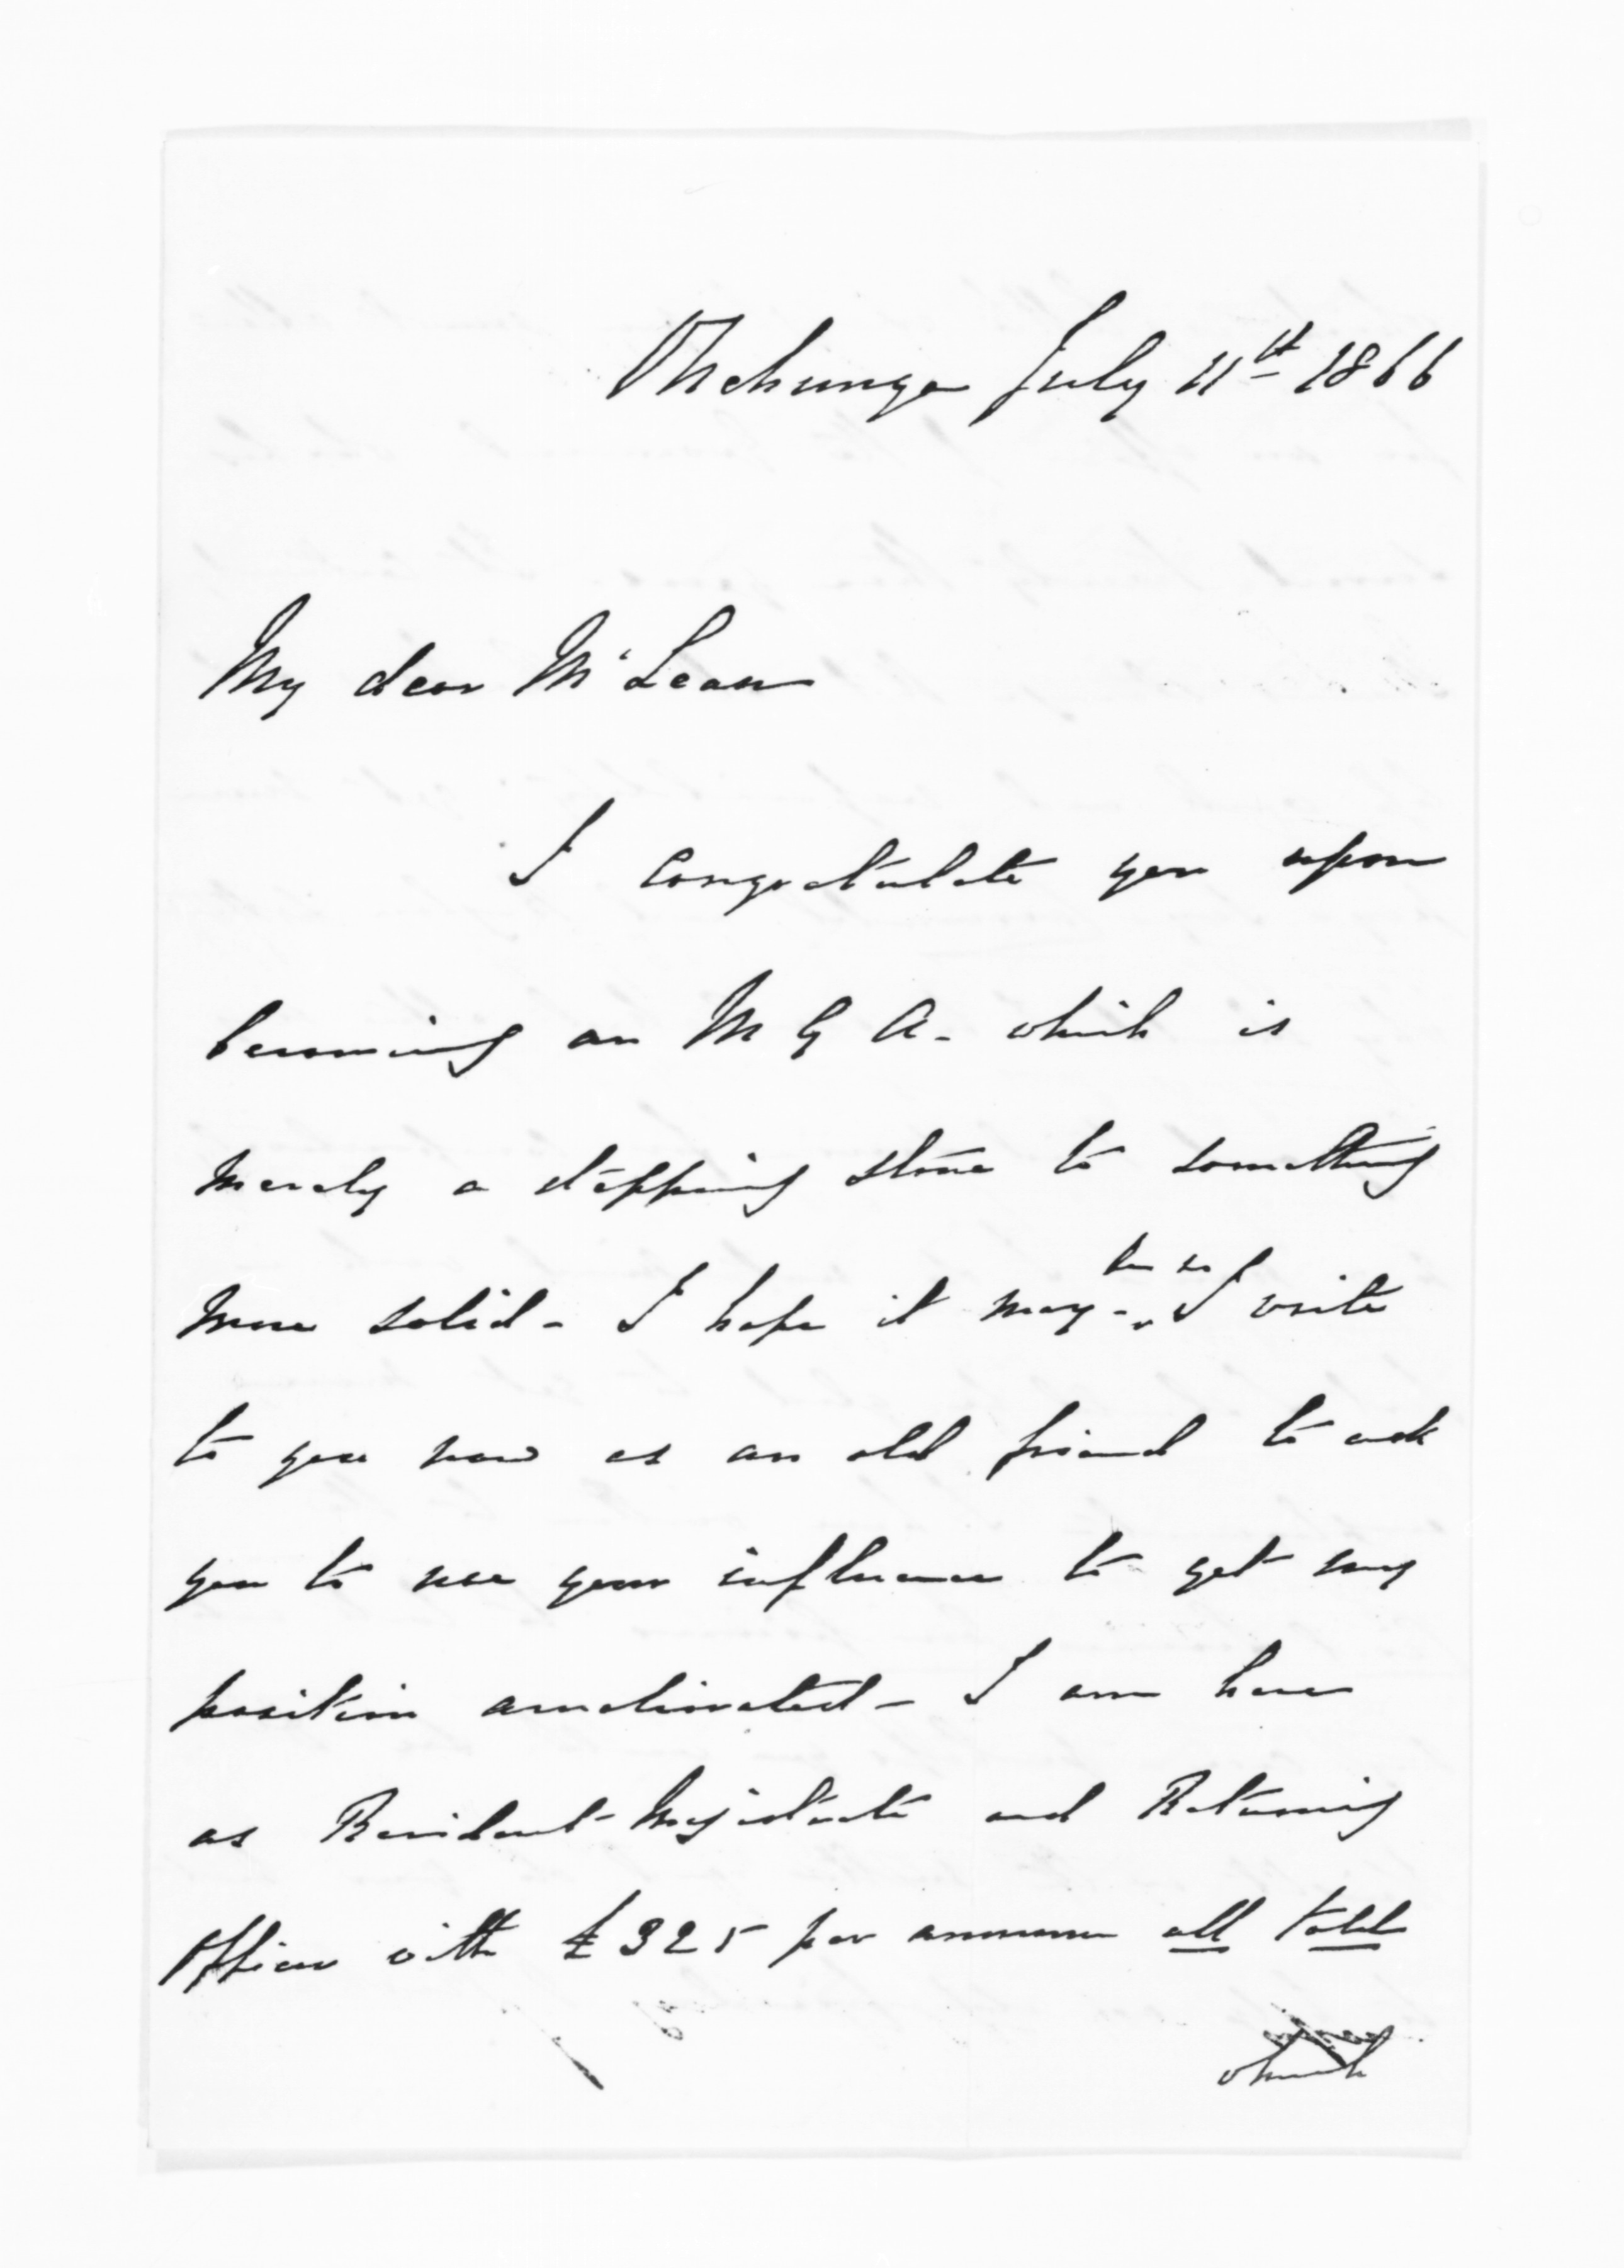 Onehunga July 11th 1866
My dear McLean
I congratulate you upon
becoming an M G A. which is
merely a stepping stone to something
more solid - I hope it may be so
- I write
to you now as an old friend to ask
you to use your influence to get my
position ameliorated - I am here
as Resident Magistrate and Returning
Officer with £325 per annum all told
which